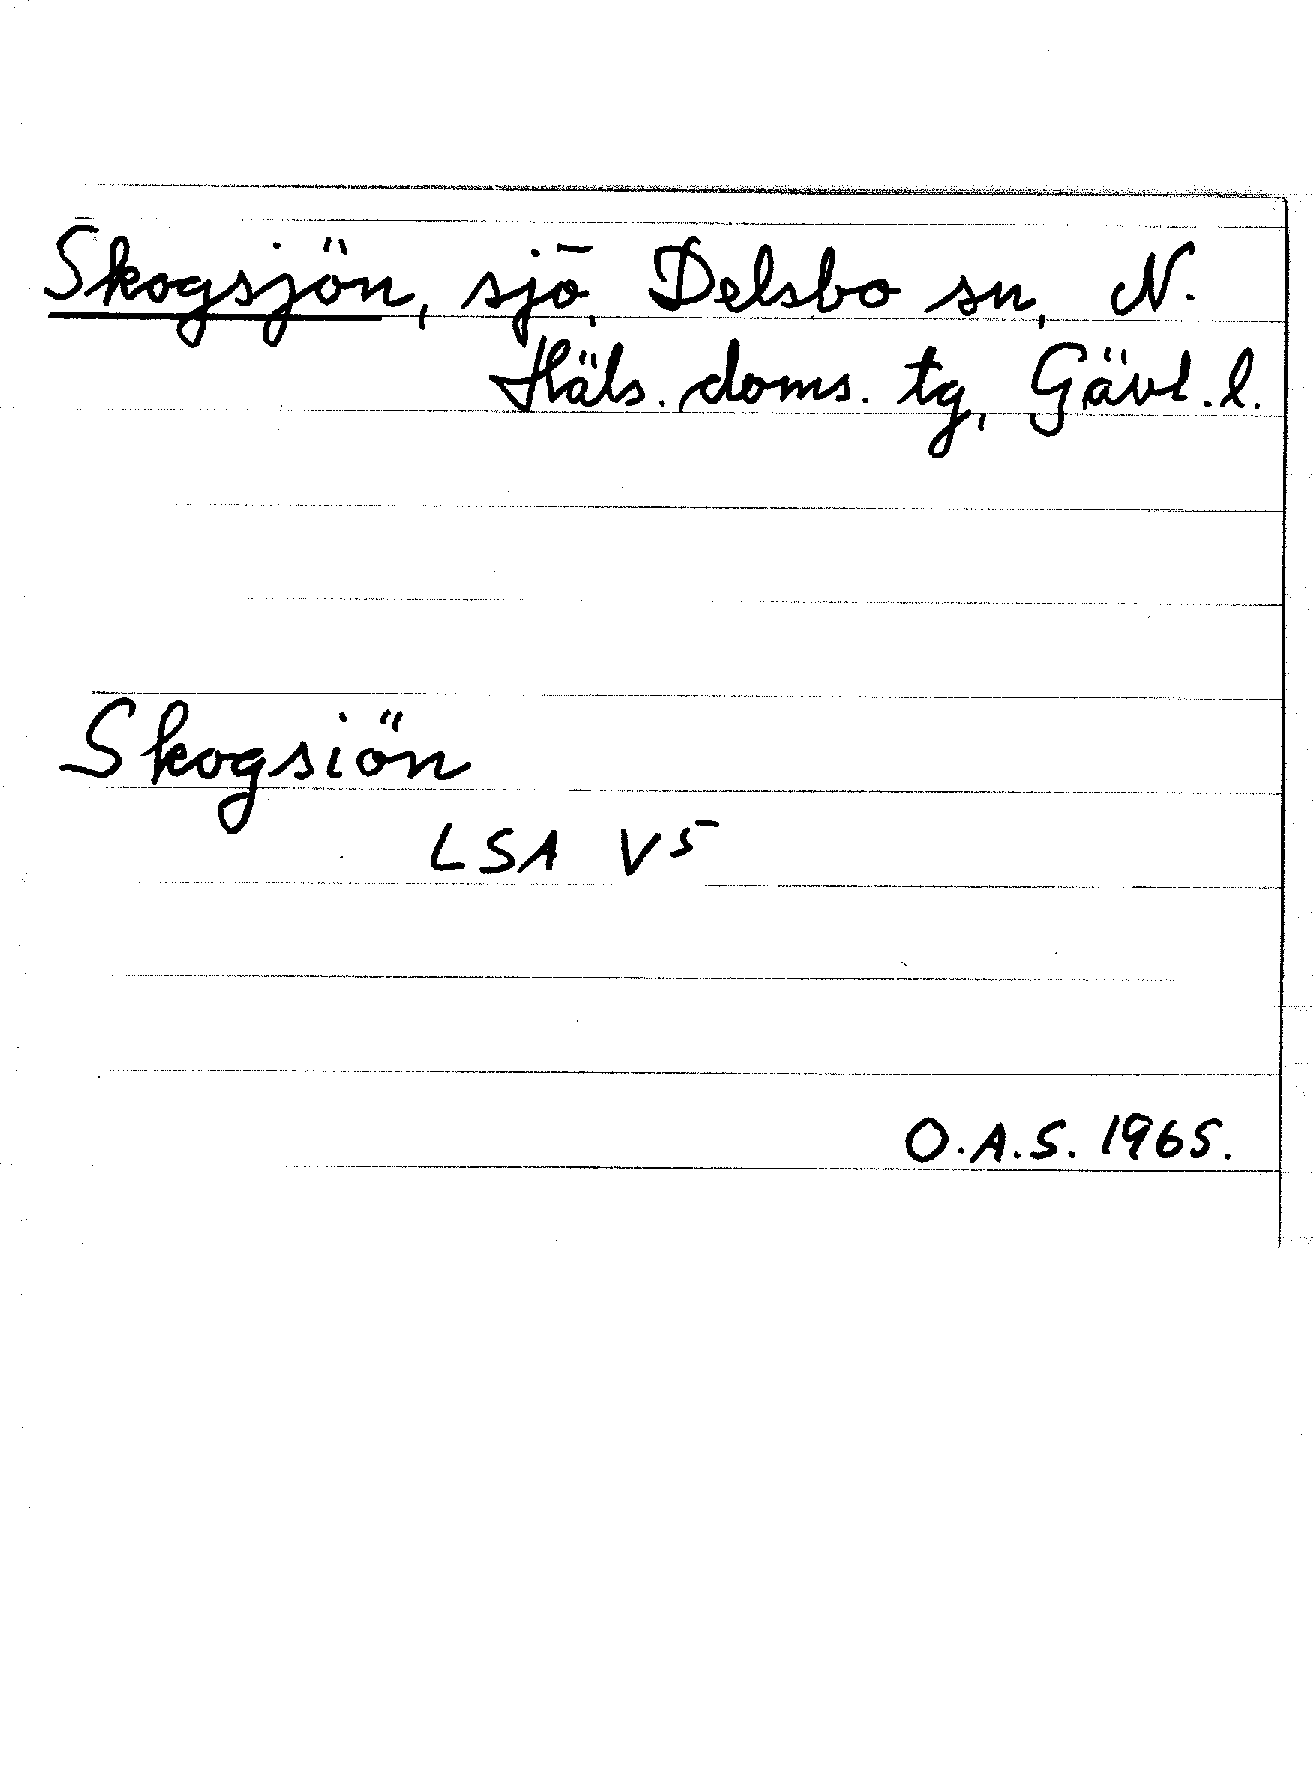 Skogsjön, sjö, Delsbo sn, N.
Häls. doms. tg, Gävl. l.
Skogsiön
LSA V5
O.A.S. 1965.